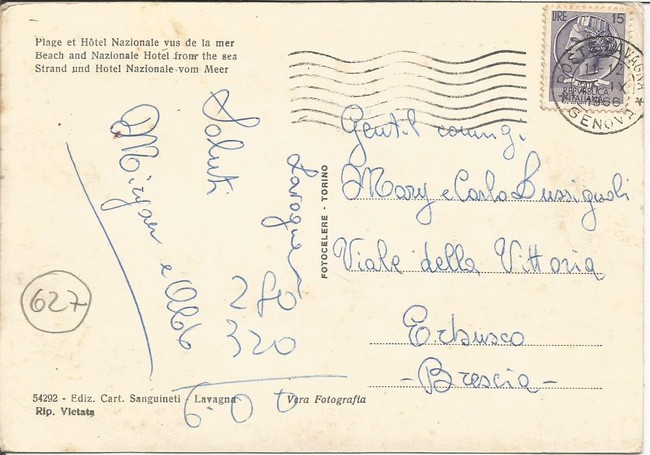 Plage et Hôtel Nazionale vus de la mer
Beach and Nazionale Hotel from the sea
Strand und Hotel Nazionale vom Meer
LIRE 15
POSTE
REPVBBLICA
ITALIANA
POSTE LAVAGNA *
IX
1966
GENOVA
Saluti
Lavagna
280
320
627
FOTOCELERE - TORINO
Gentil coniugi
Mary e Carlo Bussignoli
Viale della Vittoria
Erbusco
- Brescia -
54292 - Ediz. Cart. Sanguineti - Lavagna
Vera Fotografia
Rip. Vietata